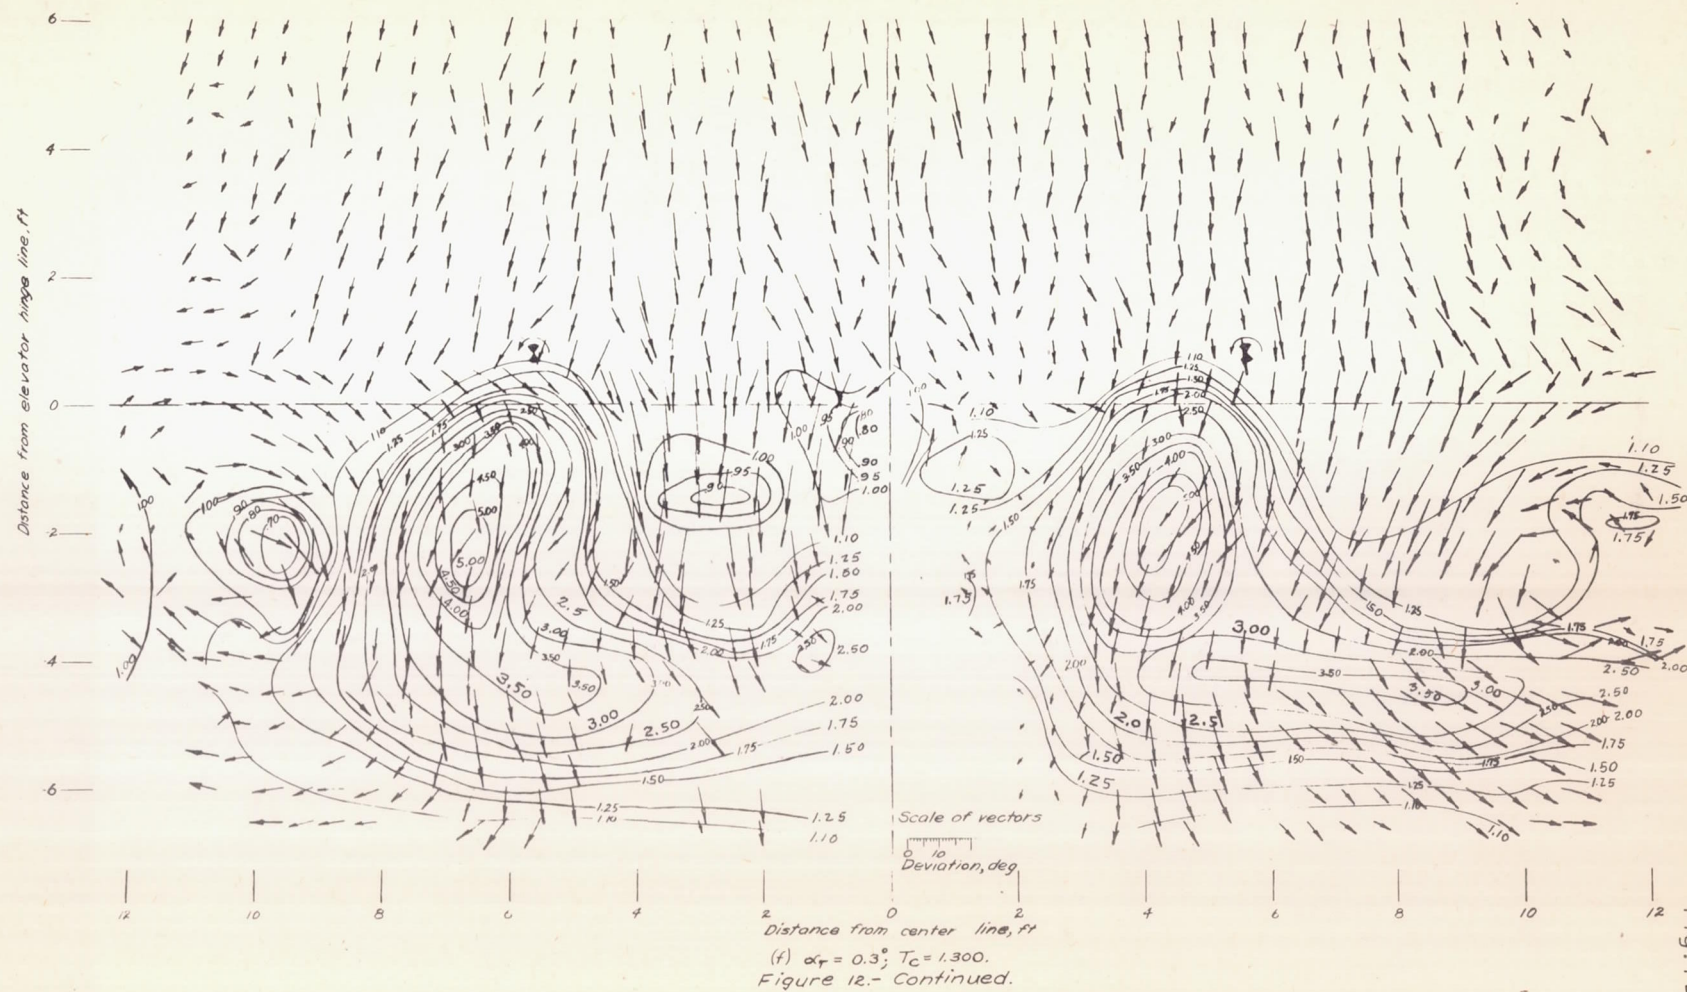 6
4
2
0
-2
-4
-6
Distance from elevator hinge line, ft
1.10
1.25
1.75
3.00
3.50
4.00
4.50
5.00
5.00
4.50
4.00
2.5
3.00
3.50
3.50
3.50
3.00
2.50
2.50
2.00
1.75
1.50
1.25
1.10
1.00
1.00
1.00
.90
.80
.70
1.00
.95
.90
1.00
.95
.90
.80
.80
.90
.95
1.00
1.10
1.25
1.50
1.75
2.00
1.50
1.25
2.00
1.75
2.50
2.50
2.00
1.75
1.50
1.25
1.10
1.10
1.10
1.25
1.25
1.25
1.50
1.75
1.75
2.00
1.10
1.25
1.50
1.75
2.00
2.50
3.00
3.50
4.00
4.50
4.00
3.50
3.00
2.00
3.50
3.50
3.00
2.50
2.0
2.5
1.50
1.25
1.50
1.75
1.25
1.10
1.10
1.50
1.25
1.10
1.25
1.50
1.75
1.75
1.75
1.75
2.00
2.50
2.00
2.50
2.00
2.00
1.75
1.50
1.25
Scale of vectors
0 10
Deviation, deg
12 10 8 6 4 2 0 2 4 6 8 10 12
Distance from center line, ft
(f) αT = 0.3°; Tc = 1.300.
Figure 12.- Continued.